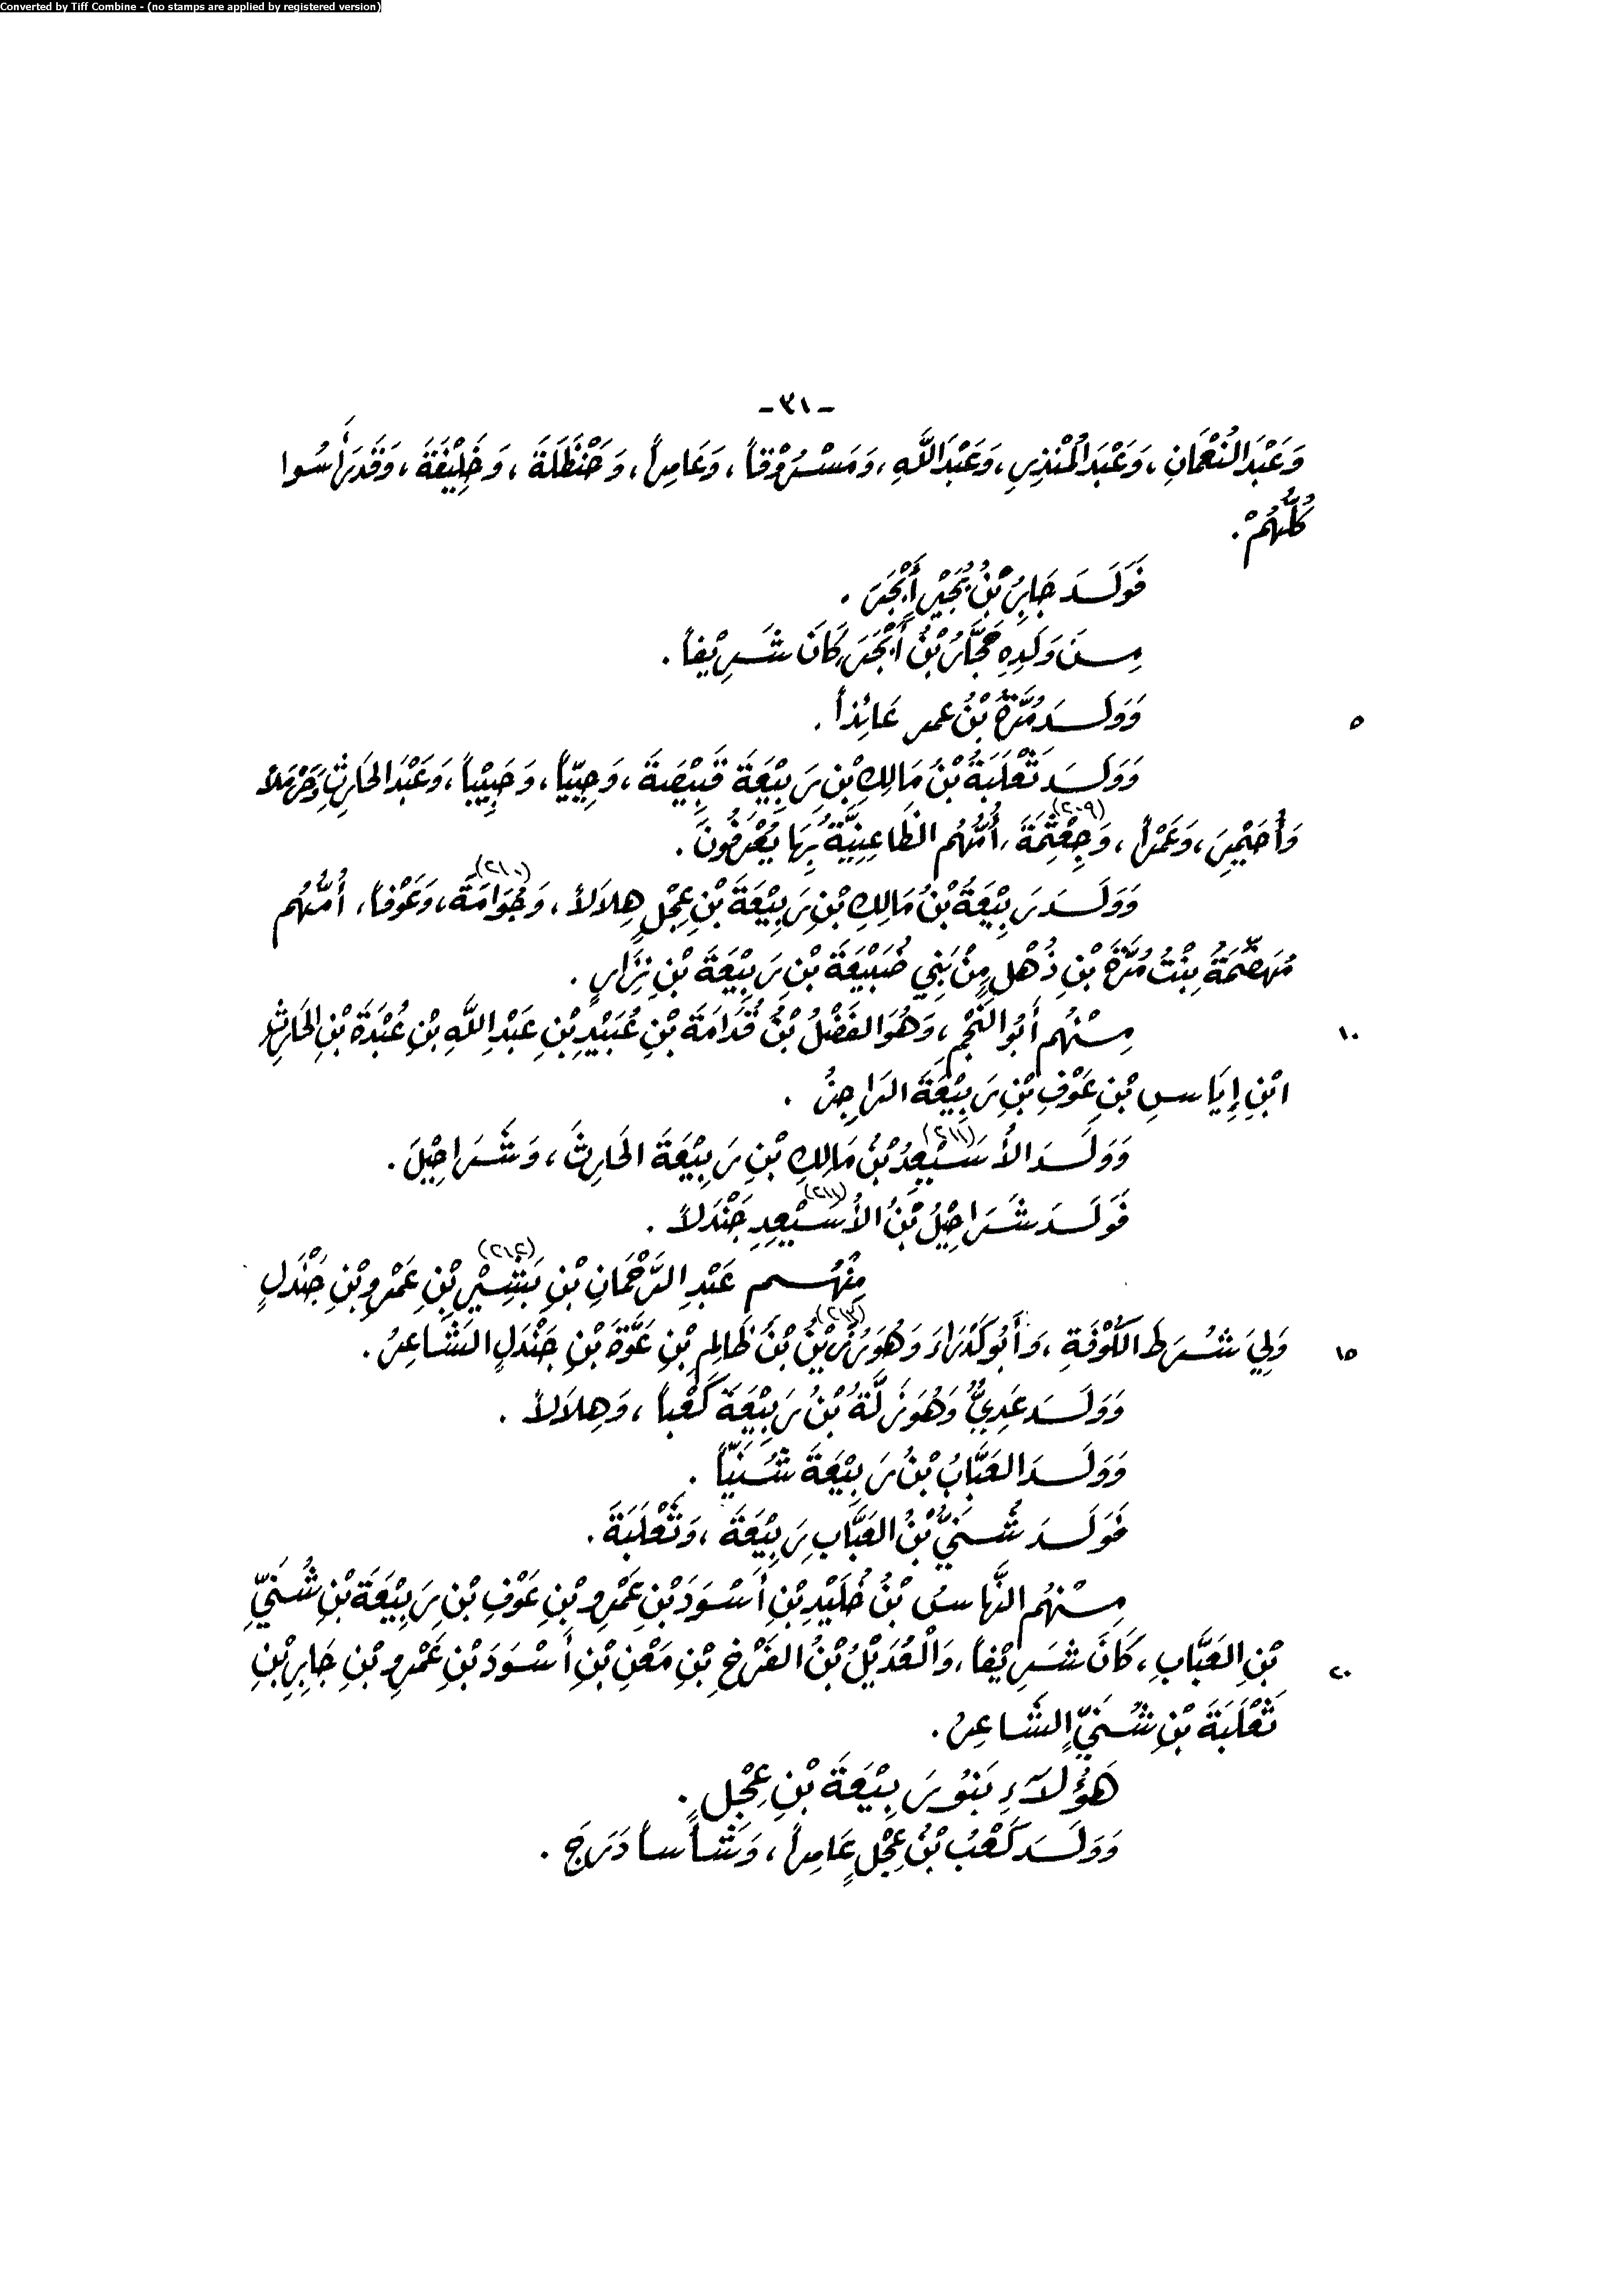 Converted by Tiff Combine - (no stamps are applied by registered version)
-٣١-
وَعَبْدَ النُّعْمَانِ، وَعَبْدَ الْمُنْذِرِ، وَعَبْدَ اللَّهِ، وَمَسْرُوْقاً، وَعَامِراً، وَحَنْظَلَةَ، وَخَلِيْفَةَ، وَقَدَ رَأَسُوا
كُلُّهُمْ.
فَوَلَدَ جَابِرُ بْنُ بُجَيْرٍ أَبْجَرَ.
مِنَ وَلَدِهِ حَجَّارُ بْنُ أَبْجَرَ كَانَ شَرِيْفاً.
وَوَلَدَ مُرَّةُ بْنُ عمر عَائِذاً. ٥
وَوَلَدَ ثَعْلَبَةُ بْنُ مَالِكِ بْنِ رَبِيْعَةَ قَبِيْصَةَ، وَحِيّياً، وَحَبِيْباً، وَعَبْدَ الحَارِثِ وَحَرْمَلاً
وَأُحَيْمِسَ، وَعَمْراً، وَجِعْثِمَةَ(٢٠٩)، أُمُّهُم الظَاعِنِيَّةُ بِهَا يُعْرَفُونَ.
وَوَلَدَ رَبِيْعَةُ بْنُ مَالِكِ بْنِ رَبِيْعَةَ بْنِ عِجْلٍ هِلاَلاً، وَجُوَامَةَ(٢١٠)، وَعَوْفاً، أُمُّهُم
مُهَضَّمَةُ بِنْتُ مُرَّةَ بْنِ ذُهْلٍ مِنْ بَنِي ضُبَيْعَةَ بْنِ رَبِيْعَةَ بْنِ نِزَارٍ.
مِنْهُم أَبُو النَّجْمِ، وَهُوَ الفَضْلُ بْنُ قُدَامَةَ بْنِ عُبَيْدِ بْنِ عَبْدِ اللَّهِ بْنِ عُبْدَةَ بْنِ الحَارِثِ ١٠
ابْنِ إِيَاسِ بْنِ عَوْفِ بْنِ رَبِيْعَةَ الرَاجِزُ.
وَوَلَدَ الأُسَيْعِدُ(٢١١) بْنُ مَالِكِ بْنِ رَبِيْعَةَ الحَارِثَ، وَشَرَاحِيْلَ.
فَوَلَدَ شَرَاحِيْلُ بْنُ الأُسَيْعِدِ(٢١١) جَنْدَلاً.
مِنْهُم عَبْدِ الرَّحْمَانِ بْنِ بَشِيْرِ(٢١٢) بْنِ عَمْرِو بْنِ جَنْدَلٍ
وَلِيَ شُرَطَ الكُوْفَةِ، وَأَبُو كَدْرَاءَ وَهُوَ رُزَيْنُ(٢١٣) بْنُ ظَالِمِ بْنِ عَوَّةَ بْنِ جَنْدَلٍ الشَاعِرُ. ١٥
وَوَلَدَ عَدِيٌّ وَهُوَ زَلَّةُ بْنُ رَبِيْعَةَ كَعْباً، وَهِلاَلاً.
وَوَلَدَ العَبَّابُ بْنُ رَبِيْعَةَ شُنَيّاً.
فَوَلَدَ شُنَيُّ بْنُ العَبَّابِ رَبِيْعَةَ، وَثَعْلَبَةَ.
مِنْهُم النَّهاسُ بْنُ خُلَيْدِ بْنِ أَسْوَدَ بْنِ عَمْرِو بْنِ عَوْفِ بْنِ رَبِيْعَةَ بْنِ شُنَيِّ
بْنِ العَبَّابِ، كَانَ شَرِيْفاً، وَالْعُدَيْلُ بْنُ الفَرْخِ بْنِ مَعْنِ بْنِ أَسْوَدَ بْنِ عَمْرِو بْنِ جَابِرِ بْنِ ٢٠
ثَعْلَبَةَ بْنِ شُنَيٍّ الشَاعِرُ.
هَؤُلاَءِ بَنُو رَبِيْعَةَ بْنِ عِجْلٍ.
وَوَلَدَ كَعْبُ بْنُ عِجْلٍ عَامِراً، وَشَأْساً دَرَجَ.